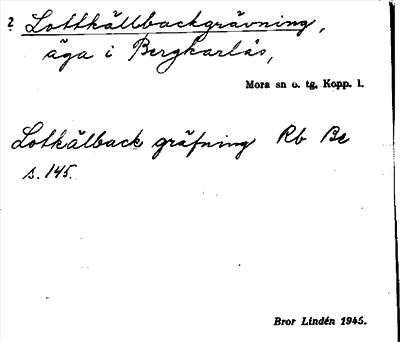 ? Lottkällbackgrävning,
äga i Bergkarlås,
Mora sn o. tg, Kopp. l.
Lotkälback gräfning Rb Be
s. 145.
Bror Lindén 1945.